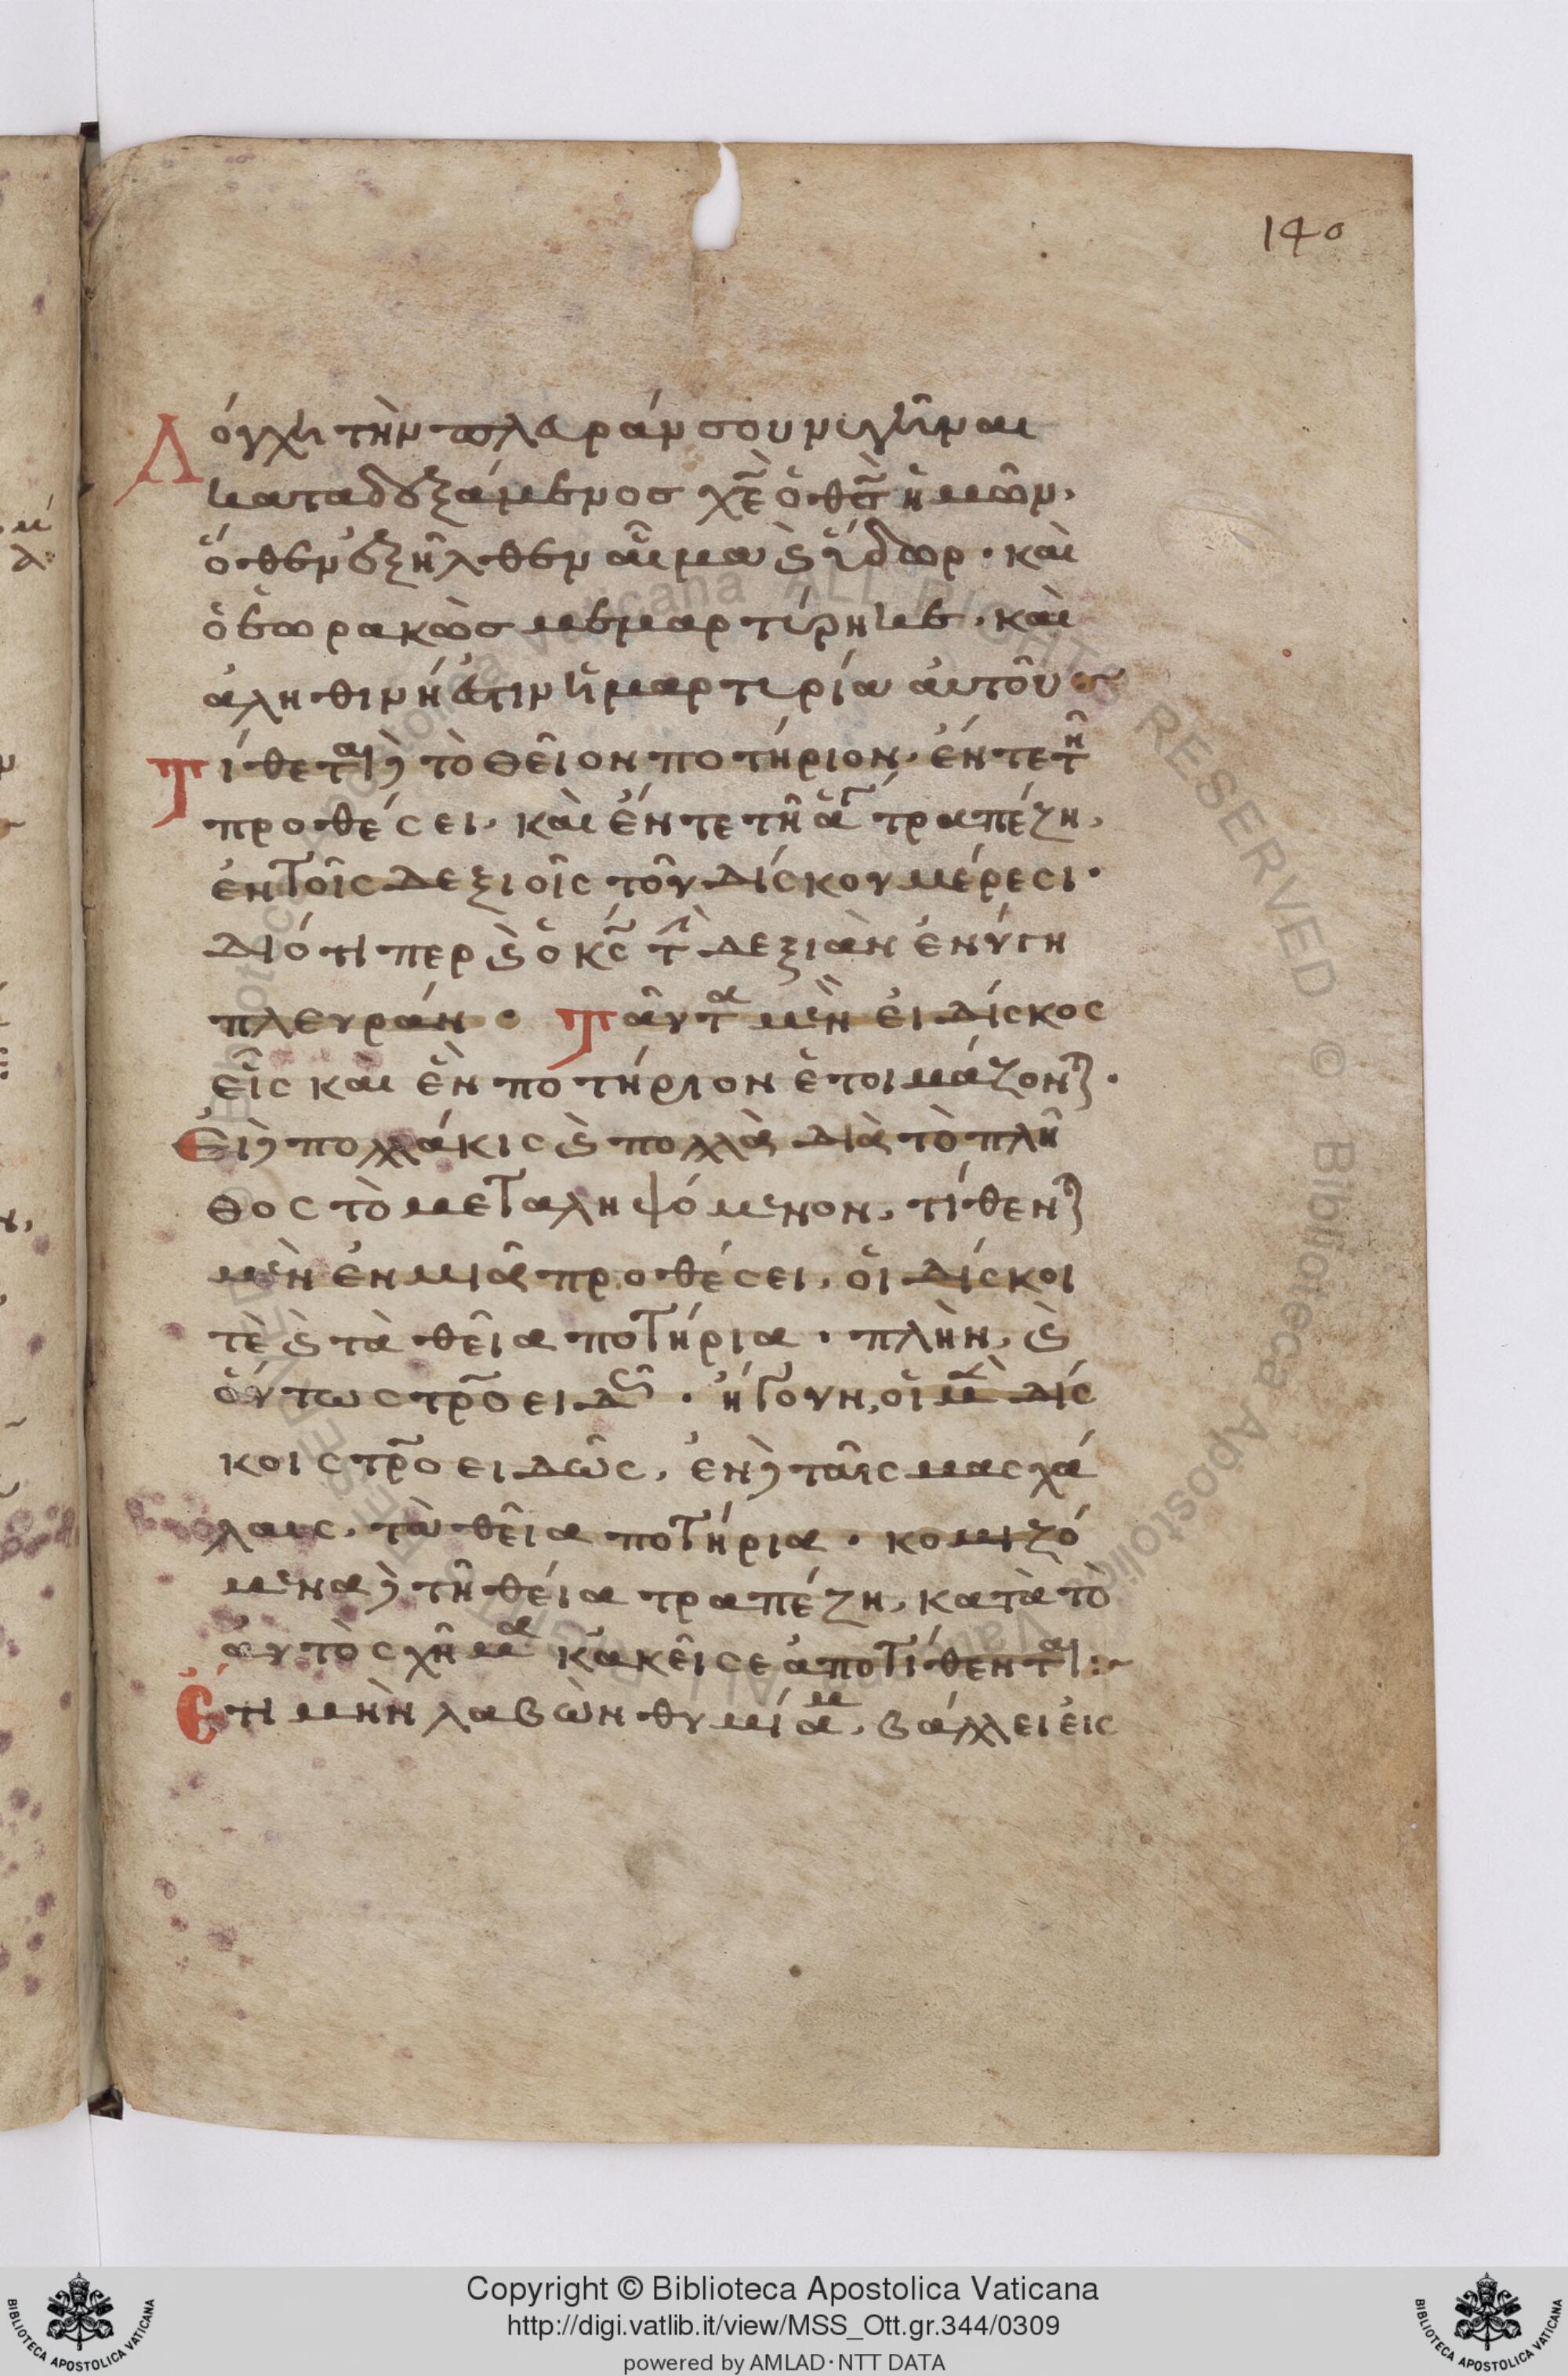 140
Λόγχη τὴν πλευράν σου νυγῆναι
καταδεξάμενος χε ὁ θς ἡμῶν,
ὅθεν ἐξῆλθεν αἷμα ϗ ὕδωρ · καὶ
ὁ ἑωρακὼς μεμαρτύρηκε · καὶ
ἀληθινή ἐστιν ἡ μαρτυρία αὐτοῦ :~
Τίθεται δὲ τὸ θεῖον ποτήριον, ἔν τε τῆ
προθέσει, καὶ ἔν τε τῆ ἁγ τραπέζη,
ἐν τοῖς δεξιοῖς τοῦ δίσκου μέρεσι ·
διότιπερ ϗ ὁ κς τὴν δεξιὰν ἐνύγη
πλευράν · Ταῦτα μὲν εἰ δίσκος
εἷς καὶ ἓν ποτήριον ἑτοιμάζονται ·
Εἰ δὲ πολλάκις ϗ πολλὰ διὰ τὸ πλῆ
θος τὸ μεταληψόμενον, τίθενται
μὲν ἐν μιᾶ προθέσει, οἱ δίσκοι
τὲ ϗ τὰ θεῖα ποτήρια · πλὴν, ϗ
οὕτως σταυροειδῶς · ἤγουν, οἱ μὲν δίσ
κοι σταυροειδῶς, ἐν δὲ ταῖς μασχά
λαις, τὰ θεῖα ποτήρια · κομιζό
μενα δὲ τῆ θεία τραπέζη, κατὰ τὸ
αὐτὸ σχῆμα κακεῖσε ἀποτίθενται :~
Ἔτι μὴν λαβὼν θυμίαμα, βάλλει εἰς
Copyright © Biblioteca Apostolica Vaticana
http://digi.vatlib.it/view/MSS_Ott.gr.344/0309
powered by AMLAD·NTT DATA
BIBLIOTECA APOSTOLICA VATICANA
BIBLIOTECA APOSTOLICA VATICANA